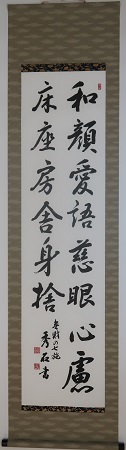 和顔愛語慈眼心慮
床座房舎身捨
無財の七施
秀石書